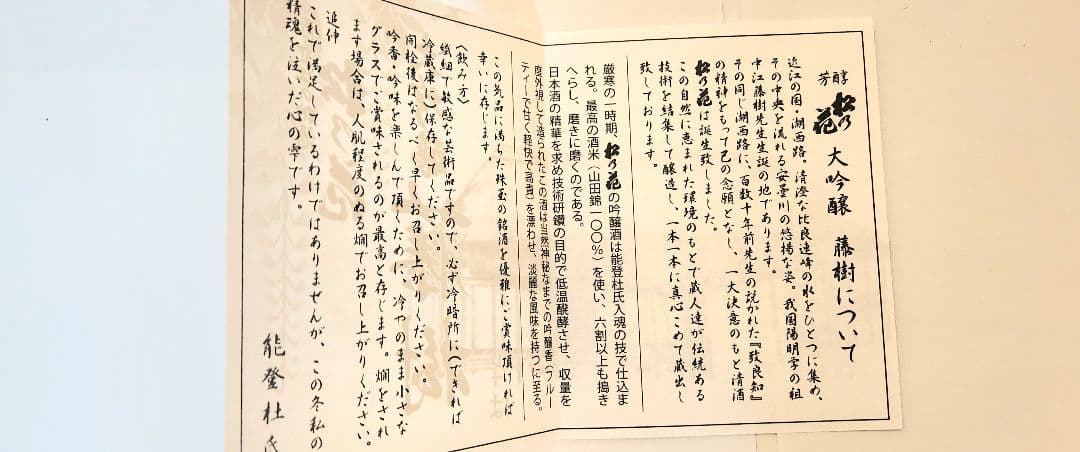 芳醇 松の花 大吟醸 藤樹について
近江の国・湖西路。清澄な比良連峰の水をひとつに集め、
その中央を流れる安曇川の悠揚な姿。我国陽明学の祖
中江藤樹先生生誕の地であります。
その同じ湖西路に、百数十年前先生の説かれた『致良知』
の精神をもって己の念願となし、一大決意のもと清酒
松の花は誕生致しました。
この自然に恵まれた環境のもとで蔵人達が伝統ある
技術を結集して醸造し、一本一本に真心こめて蔵出し
致しております。
厳寒の一時期、松の花の吟醸酒は能登杜氏入魂の技で仕込ま
れる。最高の酒米(山田錦一〇〇%)を使い、六割以上も搗き
へらし、磨きに磨くのである。
日本酒の精華を求め技術研鑽の目的で低温醗酵させ、収量を
度外視して造られたこの酒は当然神秘なまでの吟醸香(フルー
ティーで甘く軽快で高貴)を漂わせ、淡麗な風味を持つに至る。
この気品に満ちた珠玉の銘酒を優雅にご賞味頂ければ
幸いに存じます。
〈飲み方〉
繊細で敏感な芸術品ですので、必ず冷暗所に(できれば
冷蔵庫に)保存してください。
開栓後はなるべく早くお召し上がりください。
吟香・吟味を楽しんで頂くために、冷やのまま小さな
グラスでご賞味されるのが最高と存じます。燗をされ
ます場合は、人肌程度のぬる燗でお召し上がりください。
追伸
これで満足しているわけではありませんが、この冬私の
精魂を注いだ心の雫です。
能登杜氏